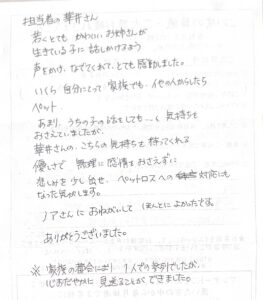 担当者の華井さん
若くとても かわいい お姉さんが
生きている子に 話しかけるよう
声をかけ、なでてくれて、とても感動しました。
いくら 自分にとって 家族でも、他の人からしたら
ペット
あまり、うちの子の話をしても…と 気持ちを
おさえていましたが、
華井さんの、こちらの気持ちを 持ってくれる
優しさで 無理に感情をおさえずに
悲しみを少し出せ、ペットロスへの 対応にも
なった気がします。
ノアさんに おねがいして ほんとに よかったです。
ありがとうございました。
※ 家族の都合により 1人での参列でしたが、
心おだやかに 見送ることが できました。